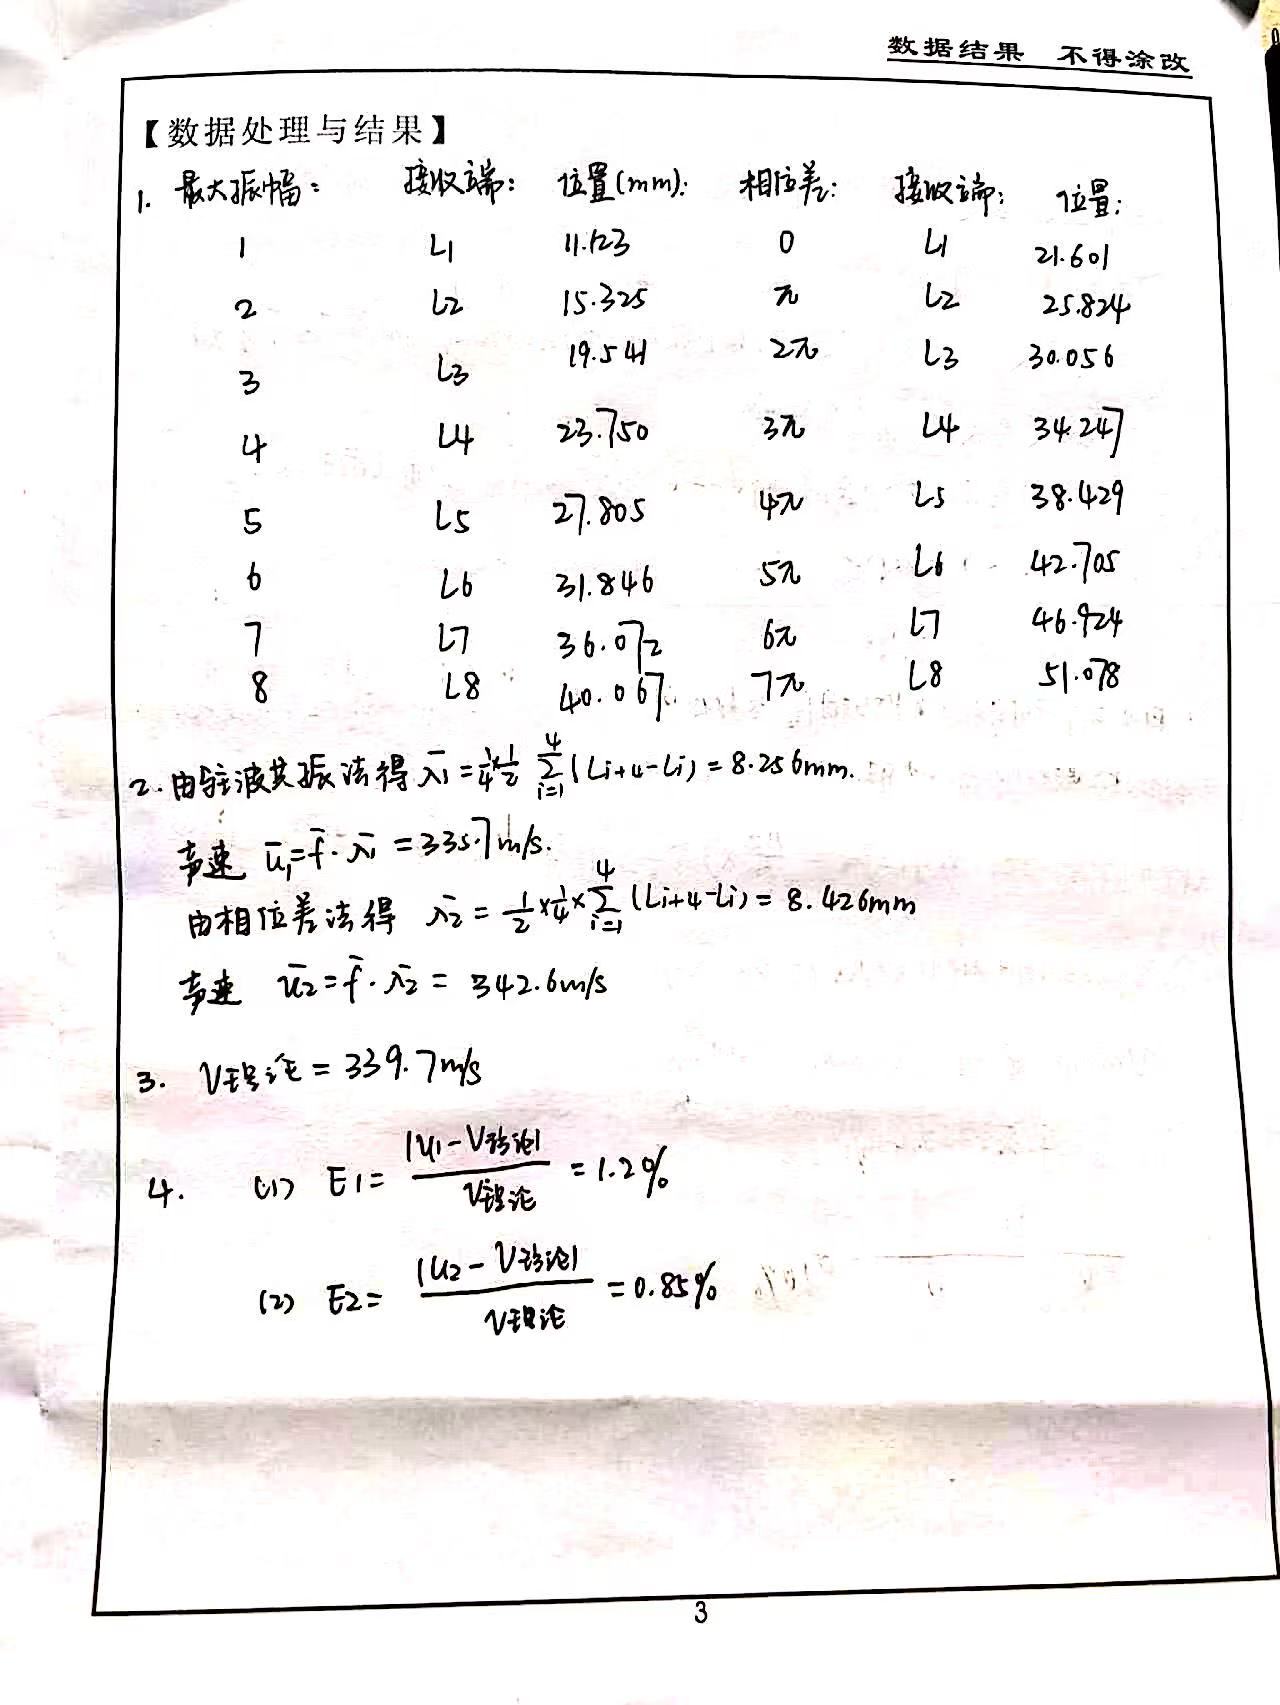 数据结果 不得涂改
【数据处理与结果】
1. 最大振幅: 接收端: 位置(mm): 相位差: 接收端: 位置:
1 L1 11.123 0 L1 21.601
2 L2 15.325 π L2 25.824
3 L3 19.541 2π L3 30.056
4 L4 23.750 3π L4 34.247
5 L5 27.805 4π L5 38.429
6 L6 31.846 5π L6 42.705
7 L7 36.072 6π L7 46.924
8 L8 40.067 7π L8 51.078
2. 由驻波共振法得 λ̄1 = 1/4 × 1/2 ∑_{i=1}^{4} (Li+4-Li) = 8.256mm.
声速 ū1 = f̄ · λ̄1 = 335.7m/s.
由相位差法得 λ̄2 = 1/2 × 1/4 × ∑_{i=1}^{4} (Li+4-Li) = 8.426mm
声速 ū2 = f̄ · λ̄2 = 342.6m/s
3. V理论 = 339.7m/s
4. (1) E1 = |u1 - V理论| / V理论 = 1.2%
(2) E2 = |u2 - V理论| / V理论 = 0.85%
3